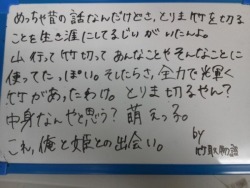 めっちゃ昔の話なんだけどさ、とりま竹を切る
ことを生き涯にしてるじじいがいたんよ。
山行って竹切ってあんなことやそんなことに
使ってたっぽい。そしたらさ、全力で光輝く
竹があったわけ。とりま切るやん?
中身なんやと思う? 萌えっ子。
これ、俺と姫との出会い。
by
竹取物語